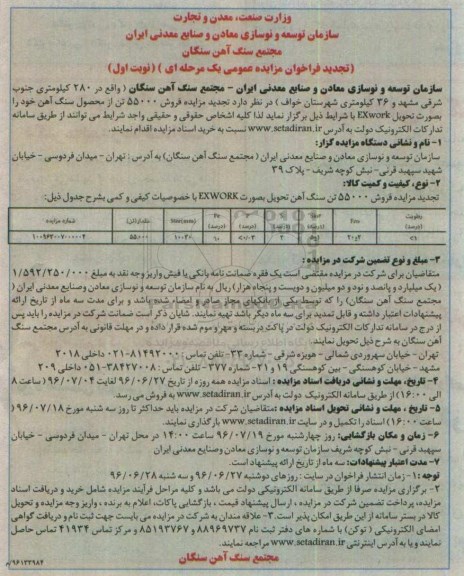 وزارت صنعت، معدن و تجارت
سازمان توسعه و نوسازی معادن و صنایع معدنی ایران
مجتمع سنگ آهن سنگان
(تجدید فراخوان مزایده عمومی یک مرحله ای) (نوبت اول)
سازمان توسعه و نوسازی معادن و صنایع معدنی ایران - مجتمع سنگ آهن سنگان (واقع در ۲۸۰ کیلومتری جنوب
شرقی مشهد و ۳۶ کیلومتری شهرستان خواف) در نظر دارد تجدید مزایده فروش ۵۵۰۰۰ تن از محصول سنگ آهن خود را
بصورت تحویل EXwork با شرایط ذیل برگزار نماید لذا کلیه اشخاص حقوقی و حقیقی واجد شرایط می توانند از طریق سامانه
تدارکات الکترونیک دولت به آدرس www.setadiran.ir نسبت به خرید اسناد مزایده اقدام نمایند.
۱- نام و نشانی دستگاه مزایده گزار:
سازمان توسعه و نوسازی معادن و صنایع معدنی ایران (مجتمع سنگ آهن سنگان) به آدرس: تهران - میدان فردوسی - خیابان
شهید سپهبد قرنی- نبش کوچه شریف - پلاک ۳۹
۲- نوع، کیفیت و کمیت کالا:
تجدید مزایده فروش ۵۵۰۰۰ تن سنگ آهن تحویل بصورت EXWORK با خصوصیات کیفی و کمی بشرح جدول ذیل:
رطوبت (درصد) Feo (درصد) (درصد) Size(mm) مقدار(تن) شماره مزایده
۵۵،۰۰۰
۳- مبلغ و نوع تضمین شرکت در مزایده:
متقاضیان برای شرکت در مزایده مقتضی است یک فقره ضمانت نامه بانکی یا فیش واریز وجه نقد به مبلغ ۱/۵۹۲/۲۵۰/۰۰۰
(یک میلیارد و پانصد و نود و دو میلیون و دویست و پنجاه هزار) ریال به نام سازمان توسعه و نوسازی معادن وصنایع معدنی ایران (
مجتمع سنگ آهن سنگان) را که توسط یکی از بانکهای مجاز صادر و امضاء شده باشد و برای مدت سه ماه از تاریخ ارائه
پیشنهادات اعتبار داشته و قابل تمدید برای سه ماه دیگر باشد تهیه نمایند. شایان ذکر است ضمانت شرکت در مزایده را باید پس
از درج در سامانه تدارکات الکترونیک دولت در پاکت دربسته و مهر و موم شده قرار داده و در مهلت قانونی به آدرس مجتمع سنگ
آهن سنگان به شرح ذیل تحویل نمایند.
تهران - خیابان سهروردی شمالی - هویزه شرقی - شماره ۳۳- تلفن تماس: ۸۱۴۹۲۰۰۰-۰۲۱ داخلی ۲۰۱۸
مشهد - خیابان کوهسنگی - بین کوهسنگی ۱۹ و ۲۱- شماره ۳۷۷ - تلفن تماس: ۳۸۴۲۷۰۰۸-۰۵۱ داخلی ۲۰۹
۴- تاریخ، مهلت و نشانی دریافت اسناد مزایده: اسناد مزایده همه روزه از تاریخ ۹۶/۰۶/۲۷ لغایت ۹۶/۰۷/۰۴ (ساعت ۸
الی ۱۶:۰۰) از طریق سامانه الکترونیک دولت به آدرس www.setadiran.ir به فروش می رسد.
۵- تاریخ، مهلت و نشانی تحویل اسناد مزایده: متقاضیان شرکت در مزایده باید حداکثر تا روز سه شنبه مورخ ۹۶/۰۷/۱۸ (
ساعت ۱۶:۰۰) اسناد را تکمیل و در سایت www.setadiran.ir بارگذاری نمایند.
۶- زمان و مکان بازگشایی: روز چهارشنبه مورخ ۹۶/۰۷/۱۹ ساعت ۱۴:۰۰ در محل تهران - میدان فردوسی - خیابان
سپهبد قرنی - نبش کوچه شریف سازمان توسعه و نوسازی معادن وصنایع معدنی ایران
۷- مدت اعتبار پیشنهادات: سه ماه از تاریخ ارائه پیشنهاد است.
توجه: ۱- زمان انتشار فراخوان در سایت: روزهای دوشنبه ۹۶/۰۶/۲۷ و سه شنبه ۹۶/۰۶/۲۸
۲- برگزاری مزایده صرفا از طریق سامانه الکترونیکی دولت می باشد و کلیه مراحل فرآیند مزایده شامل خرید و دریافت اسناد
مزایده، پرداخت تضمین شرکت در مزایده، ارسال پیشنهاد قیمت، بازگشایی پاکات، اعلام به برنده، واریز وجه مزایده و تحویل
کالا در بستر سامانه از این طریق امکان پذیر است. ۳- علاقه مندان به شرکت در مزایده می بایست جهت ثبت نام و دریافت گواهی
امضای الکترونیکی (توکن) با شماره های دفتر ثبت نام ۸۸۹۶۹۷۳۷ و ۸۵۱۹۳۷۶۷ و مرکز تماس ۴۱۹۳۴ تماس حاصل
نمایند و یا به آدرس اینترنتی www.setadiran.ir مراجعه نمایند.
مجتمع سنگ آهن سنگان
۹۶۱۳۲۹۸۴/م